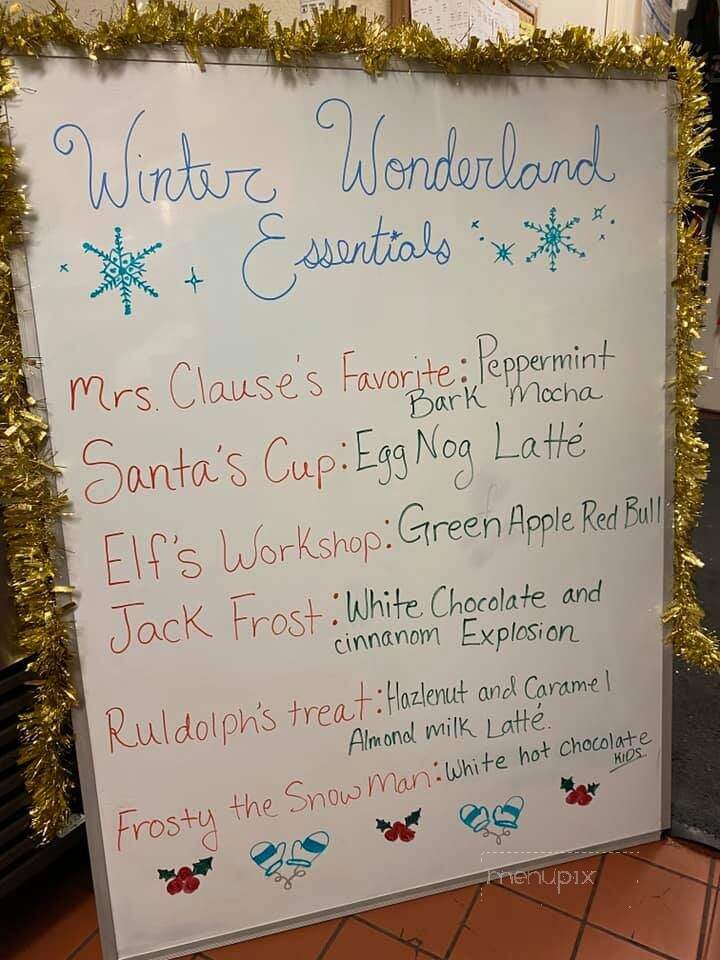 Winter Wonderland
Essentials
Mrs. Clause's Favorite: Peppermint
Bark Mocha
Santa's Cup: Egg Nog Latté
Elf's Workshop: Green Apple Red Bull
Jack Frost: White Chocolate and
cinnanom Explosion
Ruldolph's treat: Hazlenut and Caramel
Almond milk Latté.
Frosty the Snow Man: White hot chocolate
KIDS
menupix